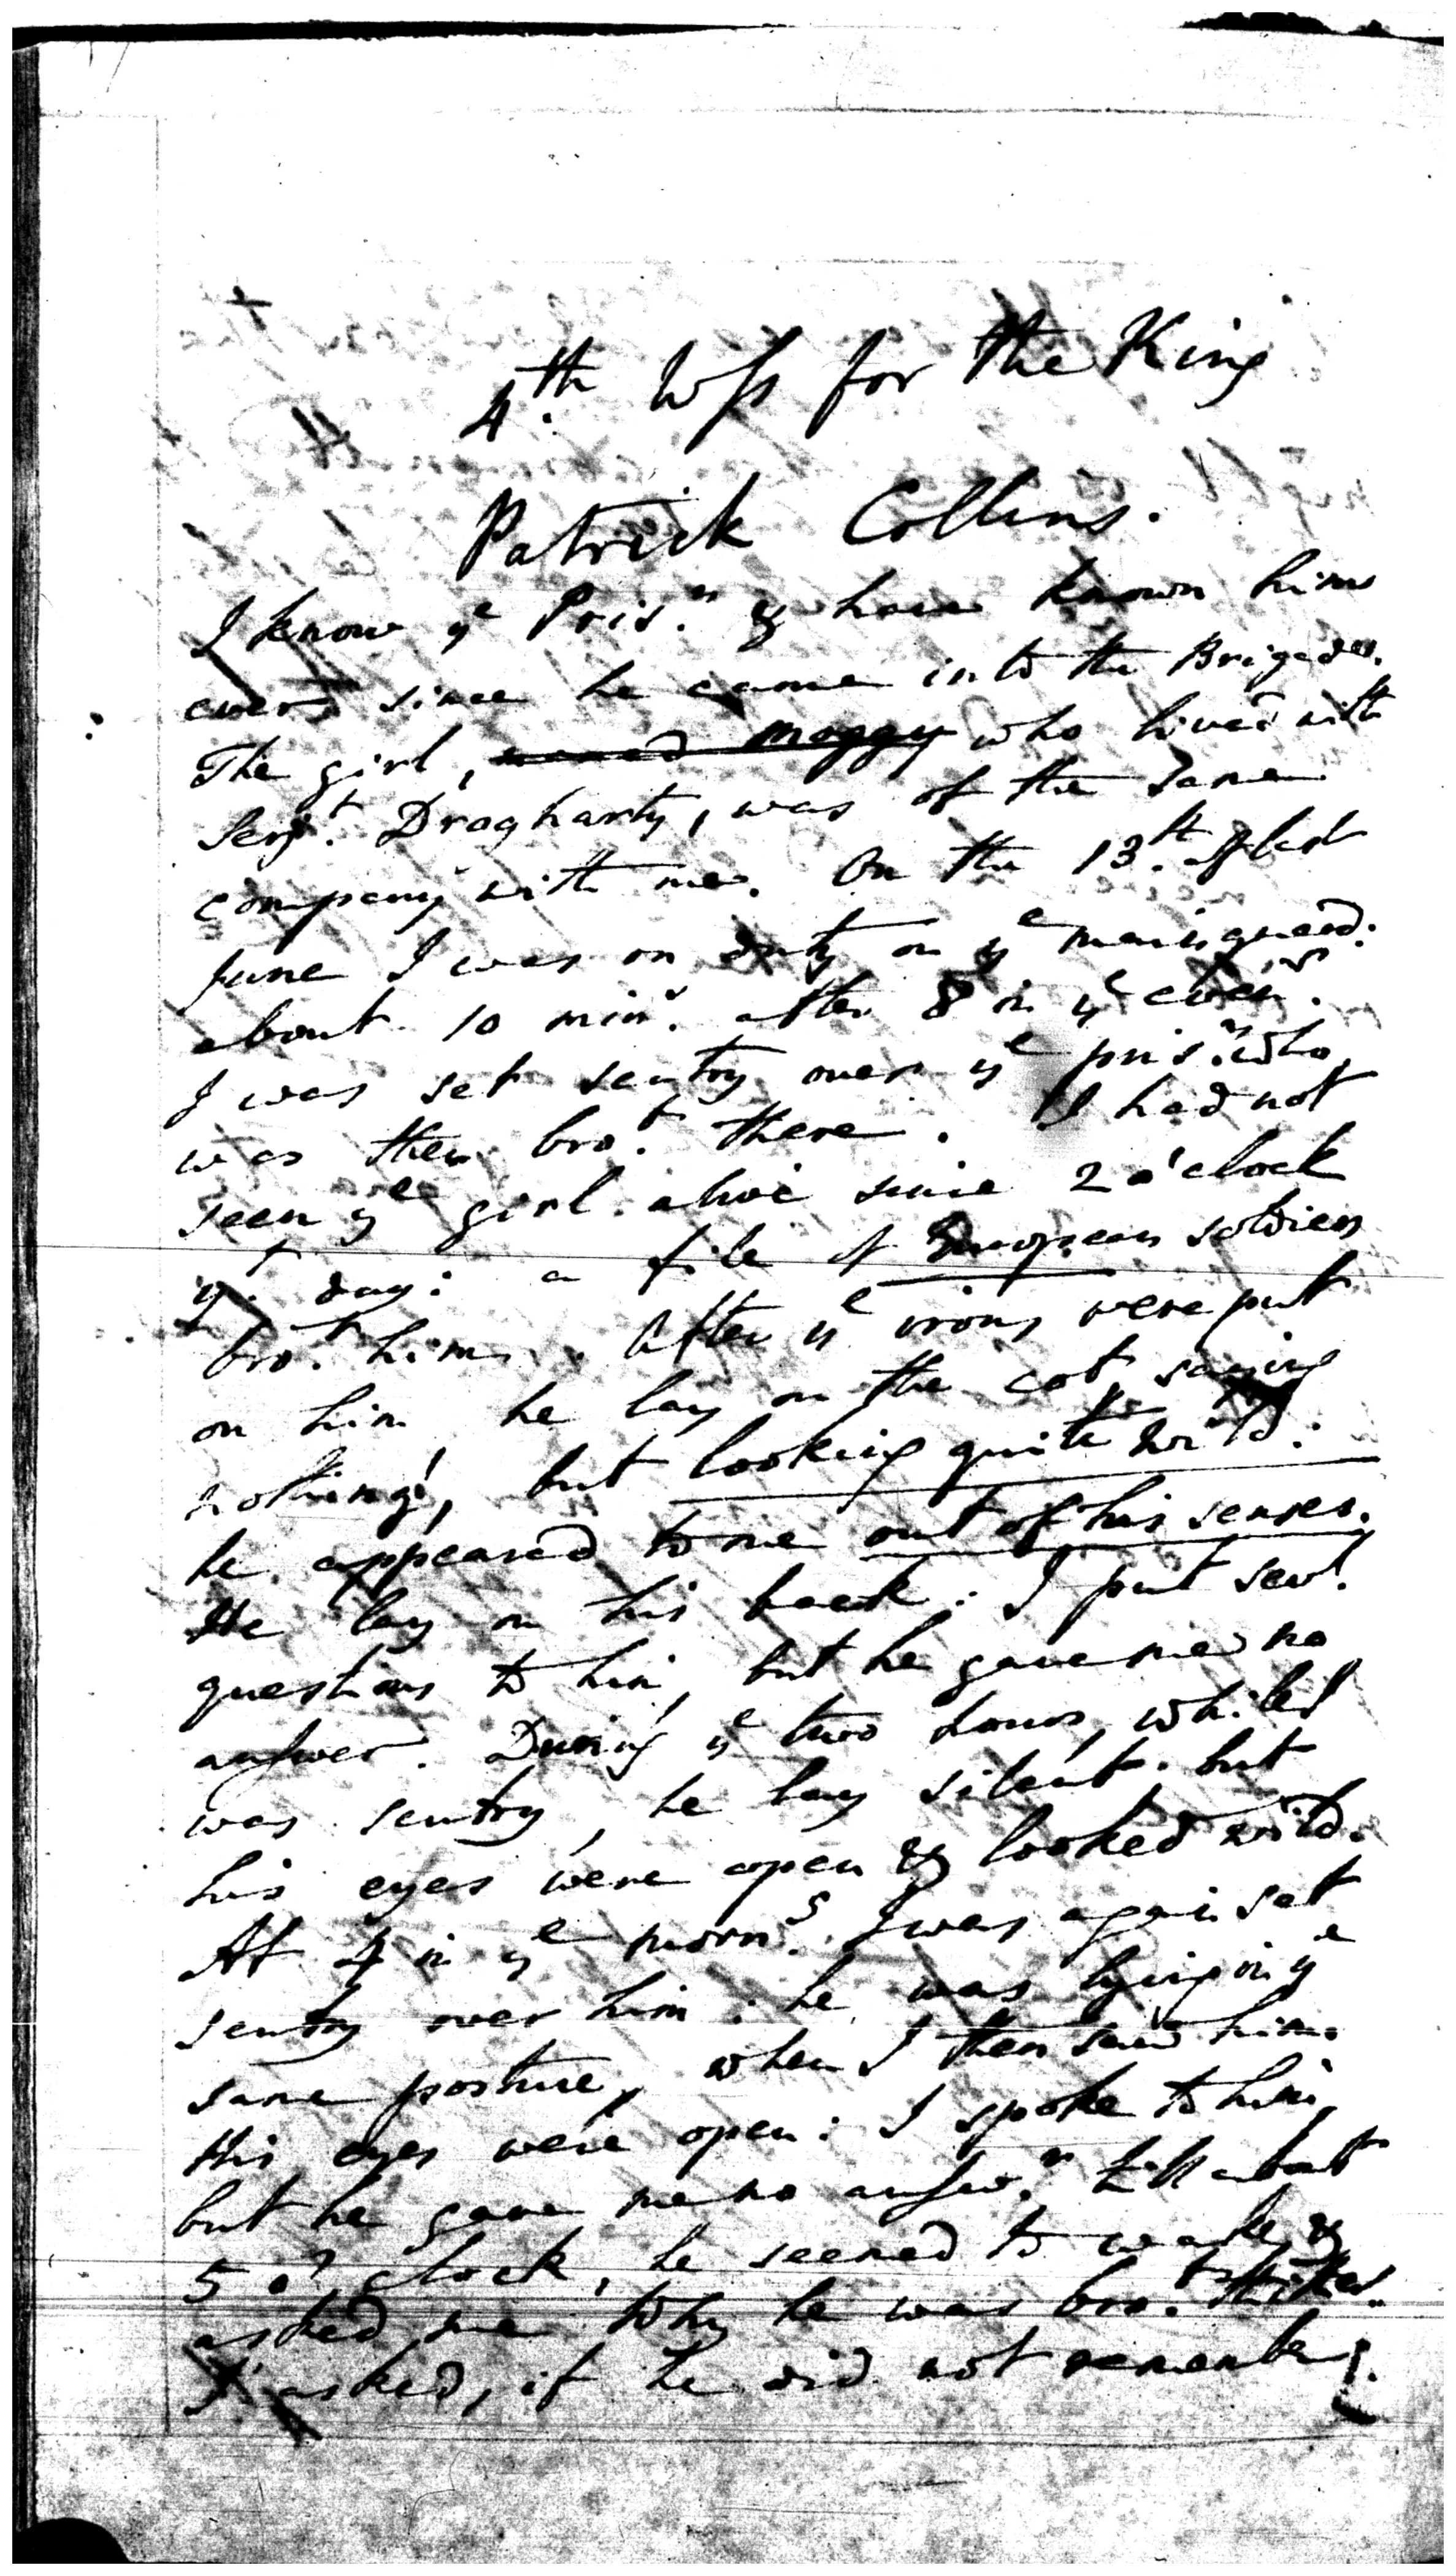 4.th Wss for the King
Patrick Collins.
I know ye Pris.r & have known him
ever since he came into the Brigade.
The girl, named Moggy who lived with
Serj.t Dragharty, was of the same
company with me. On the 13.th of last
June I was on duty on ye main guard:
about 10 min.s after 8 in ye even.g
I was set sentry over ye pris.r who
was then bro.t there. I had not
seen ye girl alive since 2 o'clock
yt day: a file of European soldiers
bro.t him. After ye irons were put
on him he lay on the cot, saying
nothing, but looking quite wild:
he appeared to me out of his senses.
He lay on his back. I put sev.l
questions to him, but he gave me no
answer. During ye two hours, whilst
was sentry, he lay silent. but
his eyes were open & looked wild.
At 4 in ye morn.g I was again set
sentry over him: he was lying in ye
same posture, when I then saw him.
His eyes were open: I spoke to him,
but he gave me no answ.r till about
5 o'clock, he seemed to wake, &
asked me why he was bro.t thither.
I asked, if he did not remember